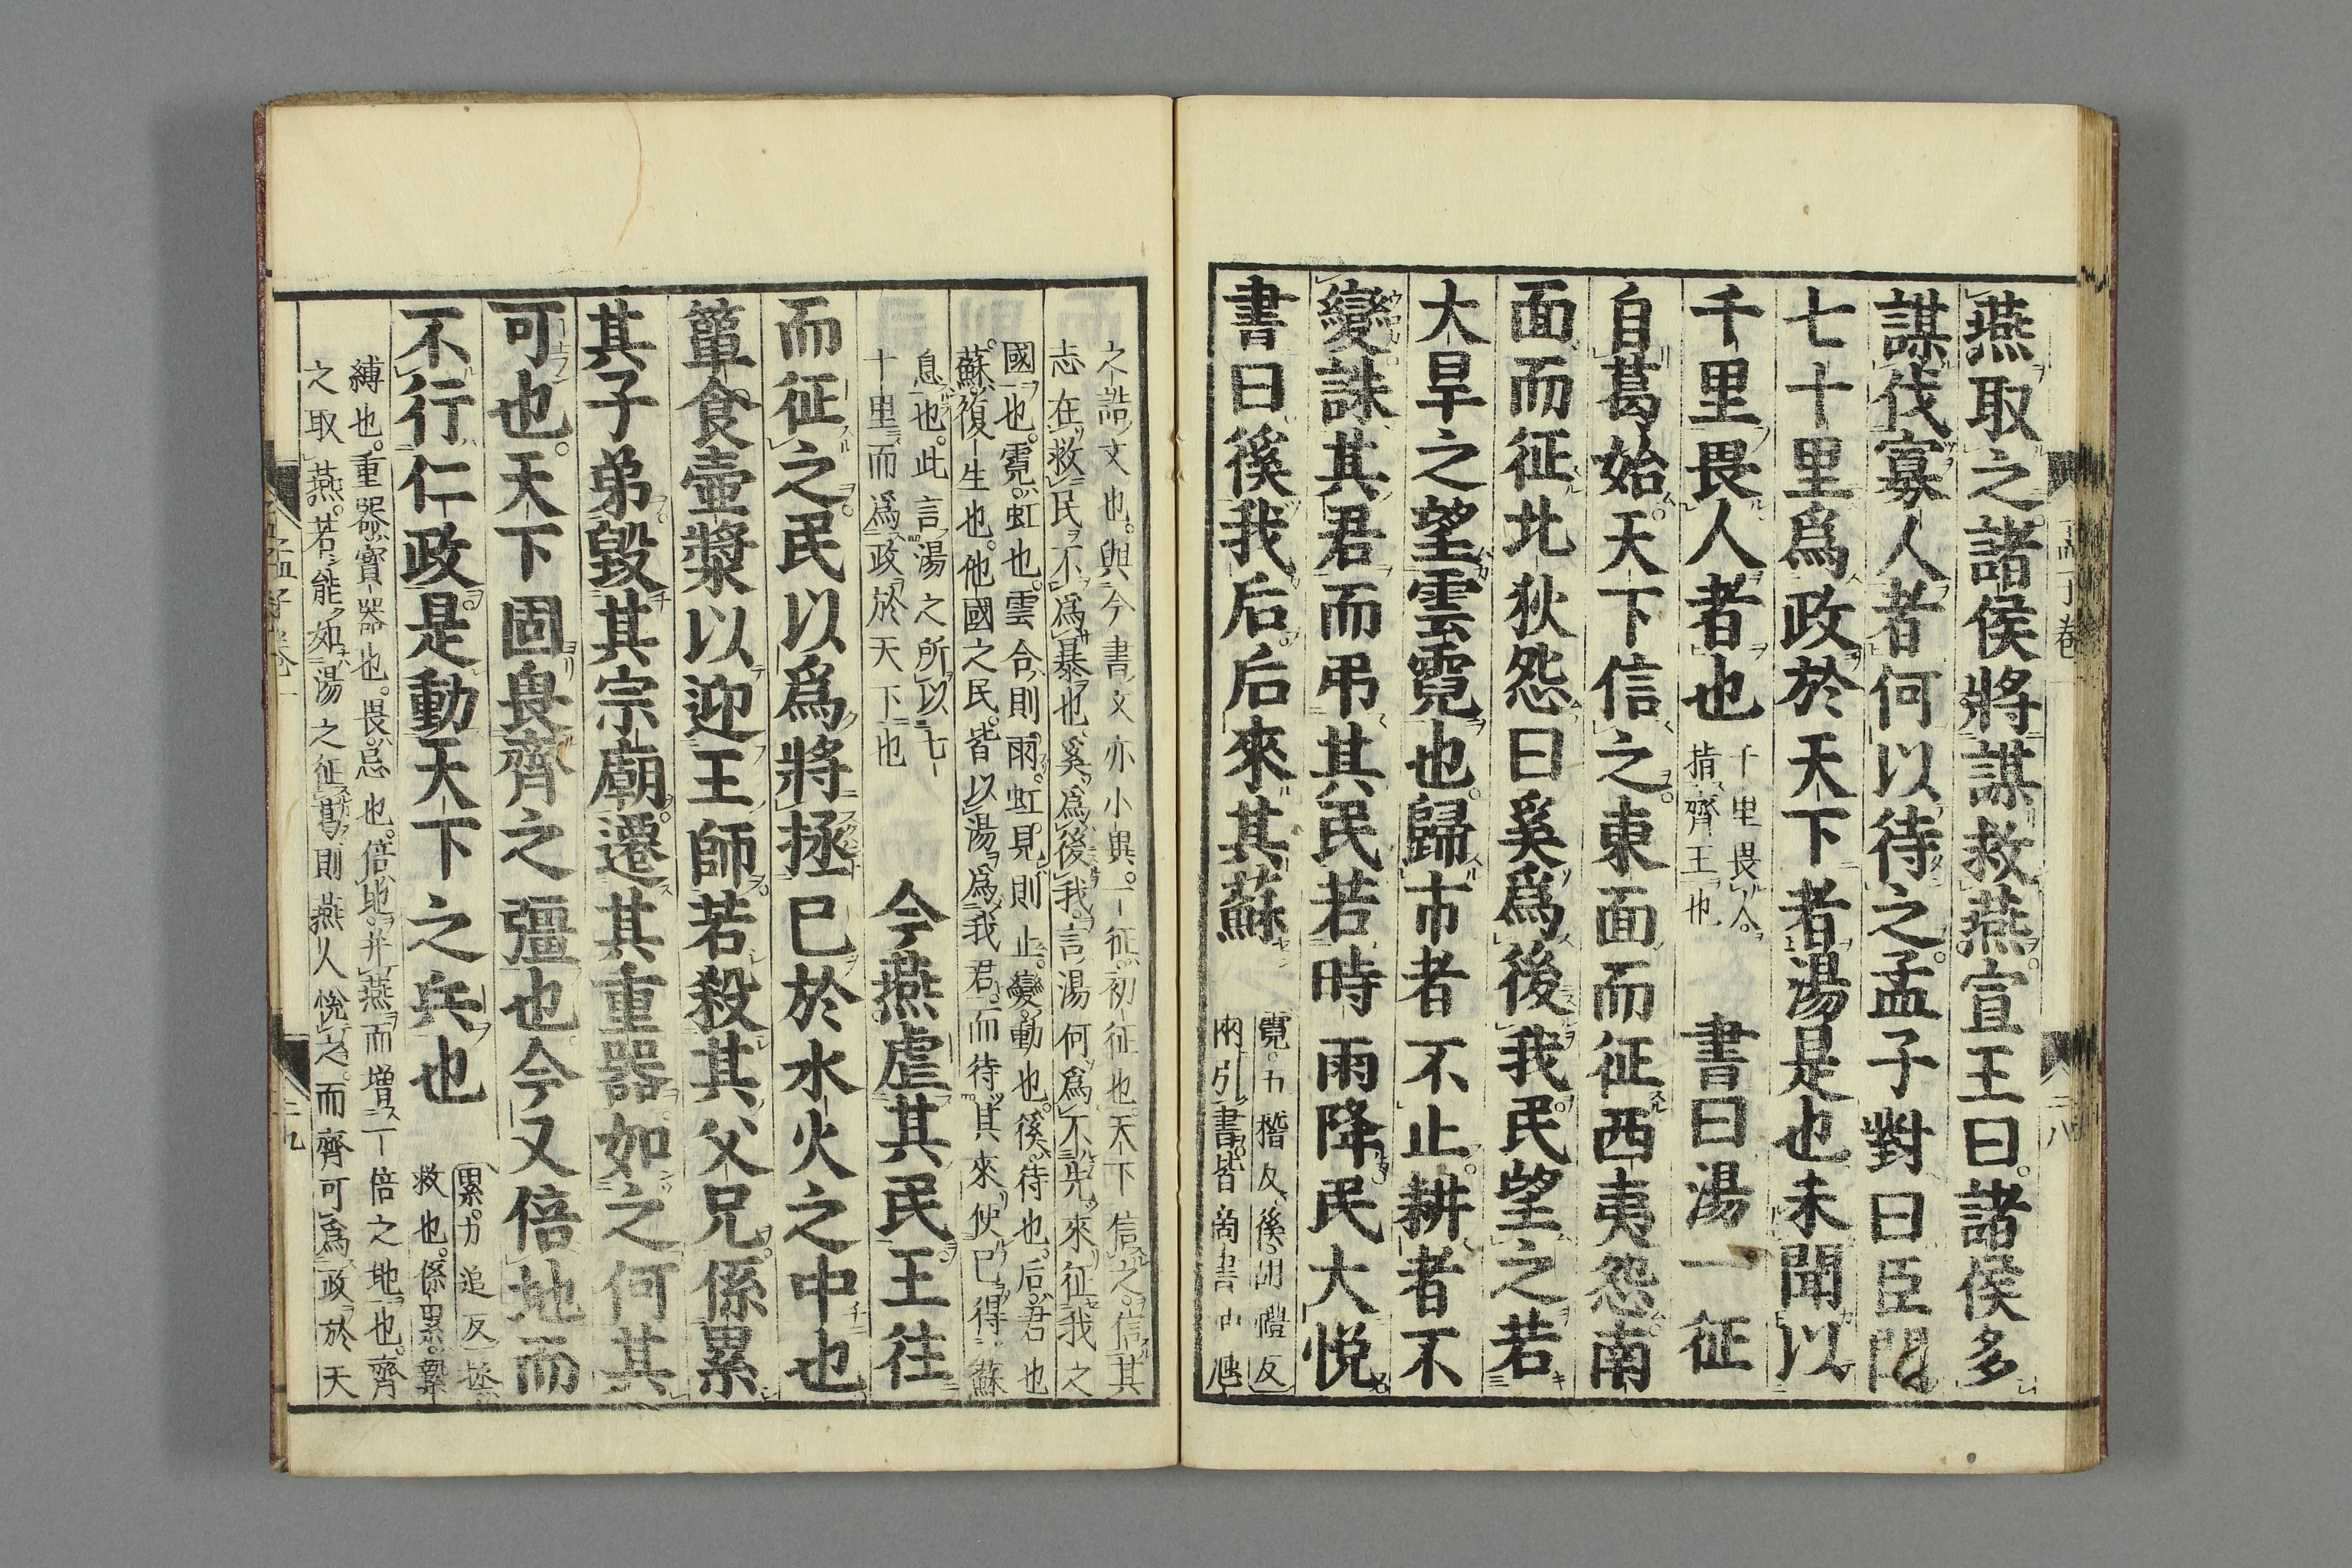 燕取之諸侯將謀救燕宣王曰諸侯多
謀伐寡人者何以待之孟子對曰臣聞
七十里爲政於天下者湯是也未聞以
千里畏人者也
千里畏人
指齊王也
書曰湯一征
自葛始天下信之東面而征西夷怨南
面而征北狄怨曰奚爲後我民望之若
大旱之望雲霓也歸市者不止耕者不
變誅其君而弔其民若時雨降民大悅
書曰徯我后后來其蘇
霓五稽反徯胡禮反
兩引書皆商書仲虺
之誥文也與今書文亦小異一征初征也天下信之信其
志在救民不爲暴也奚爲後我言湯何爲不先來征我之
國也霓虹也雲合則雨虹見則止變動也徯待也后君也
蘇復生也他國之民皆以湯爲我君而待其來使已得蘇
息也此言湯之所以七
十里而爲政於天下也
今燕虐其民王往
而征之民以爲將拯已於水火之中也
簞食壺漿以迎王師若殺其父兄係累
其子弟毀其宗廟遷其重器如之何其
可也天下固畏齊之彊也今又倍地而
不行仁政是動天下之兵也
累力追反拯
救也係累縶
縛也重器寶器也畏忌也倍地并燕而增一倍之地也齊
之取燕若能如湯之征葛則燕人悅之而齊可爲政於天